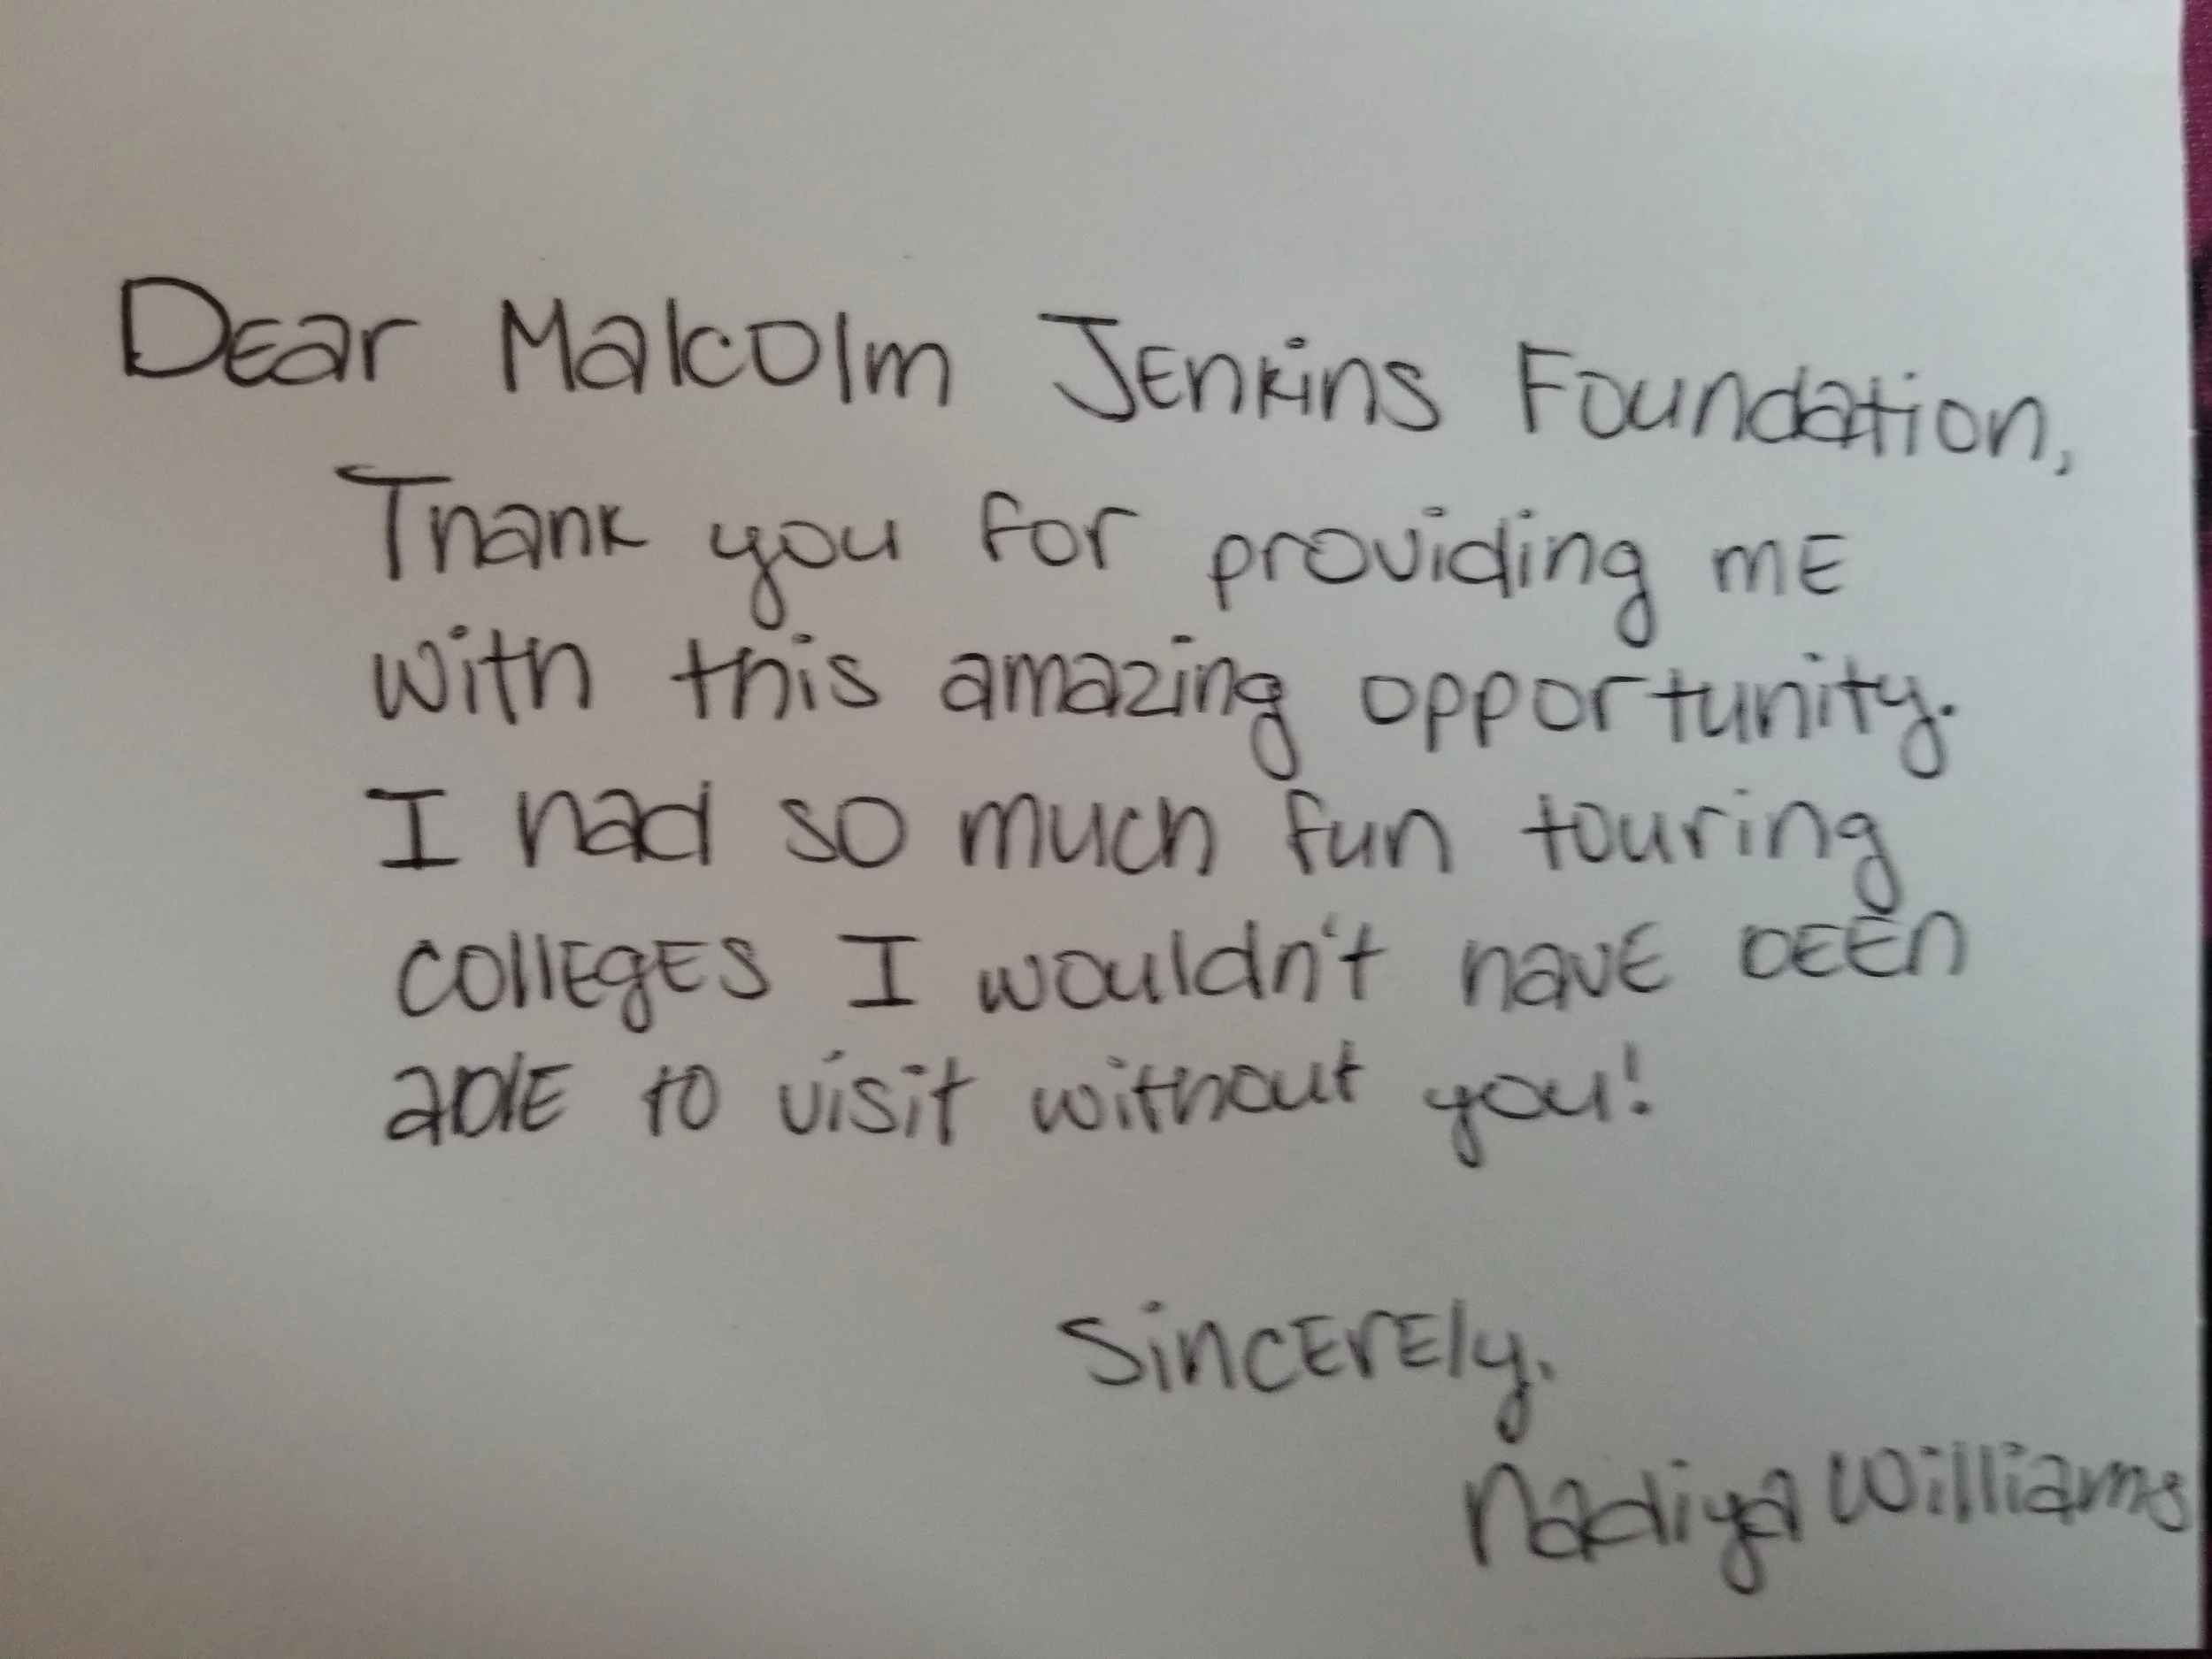 Dear Malcolm Jenkins Foundation,
Thank you for providing me
with this amazing opportunity.
I had so much fun touring
colleges I wouldn't have been
able to visit without you!
Sincerely,
Nadiya Williams